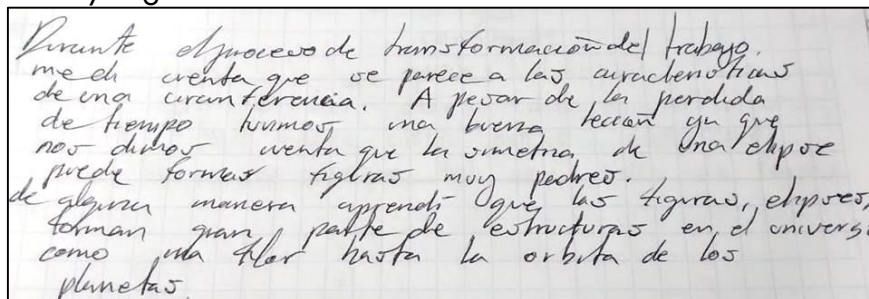 Durante el proceso de transformación del trabajo.
me di cuenta que se parece a las caracteristicas
de una circunferencia. A pesar de la perdida
de tiempo tuvimos una buena leccion ya que
nos dimos cuenta que la simetria de una elipse
puede formar figuras muy padres.
de alguna manera aprendi que las figuras, elipses,
forman gran parte de estructuras en el universo
como una flor hasta la orbita de los
planetas.